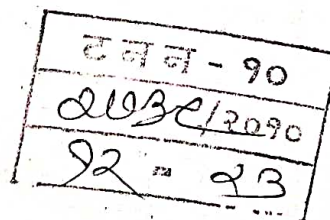 ट न न - १०
२७३९/२०१०
१२ - २३